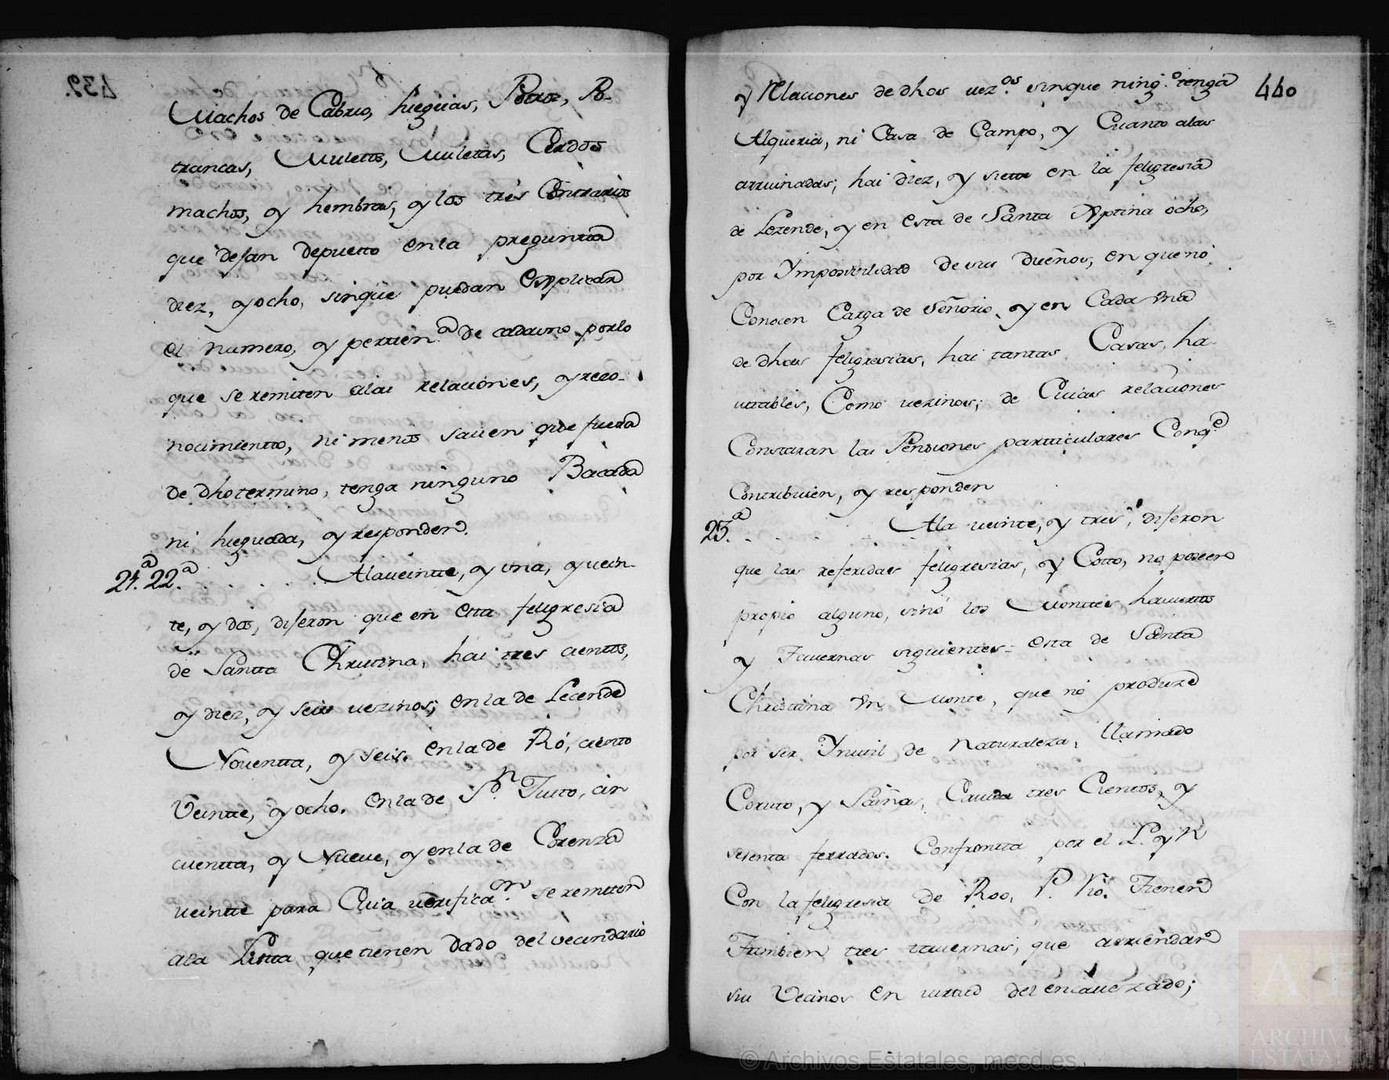 439.
Machos de Cabrio, hieguas, Potros, Po-
trancas, Muletos, Muletas, Cerdos
machos, y hembras, y los tres Contrarios
que dejan depuesto enla pregunta
diez, y ocho, sinque puedan explicar
el numero, y pertien.ª de cadauno porlo
que se remiten alas relaciones, y reco-
nocimiento, ni menos saven que fuera
de dho termino, tenga ninguno Bacada
ni hieguada, y responden.
21.ª 22.ª . . . . Alaveinte, y una, y vein-
te, y dos, dijeron que en esta feligresia
de Santta Christina, hai tres cientos,
y diez, y seis vezinos; en la de Lezende
Noventta, y seis. en la de Ró, ciento
Veintte, y ocho. en la de Sn. Justo, cin
cuentta, y Nueve, y en la de Orenza
veintte para Cuia verificaon. se remiten
ala Lista, que tienen dado del vecindario
y Relaciones de dhos vezos. sinque ningo. tenga 440
Alqueria, ni Casa de Campo, y Cuanto alas
arruinadas, hai diez, y siette en la feligresia
de Lezende, y en esta de Santa Xptina ocho,
por Ymposivilidad de sus dueños, en que no
Conocen Carga de Señorio, y en Cada una
de dhas feligresias, hai tantas Casas, ha-
vitables, Como vezinos; de Cuias relaciones
Constaran las Pensiones particulares Conqe.
Contribuien, y responden
23.ª . . . . . Ala veinte, y tres, dijeron
que las referidas feligresias, y Coto, no poseen
propio alguno, sinó los Montes haviertos
y Tavernas siguientes: esta de Santa
Christina Un Monte, que nó produze
por ser Ynutil de Naturaleza, llamado
Coruto, y Saiñas, Cavida tres Cientos, y
sesenta ferrados. Confrontta por el L. y N
Con la feligresia de Roo, P. Rio. Tienen
Tambien tres tavernas, que arriendan
sus Vecinos en virtud del encavezado;
© Archivos Estatales, mecd.es
AE
ARCHIVOS
ESTATALES